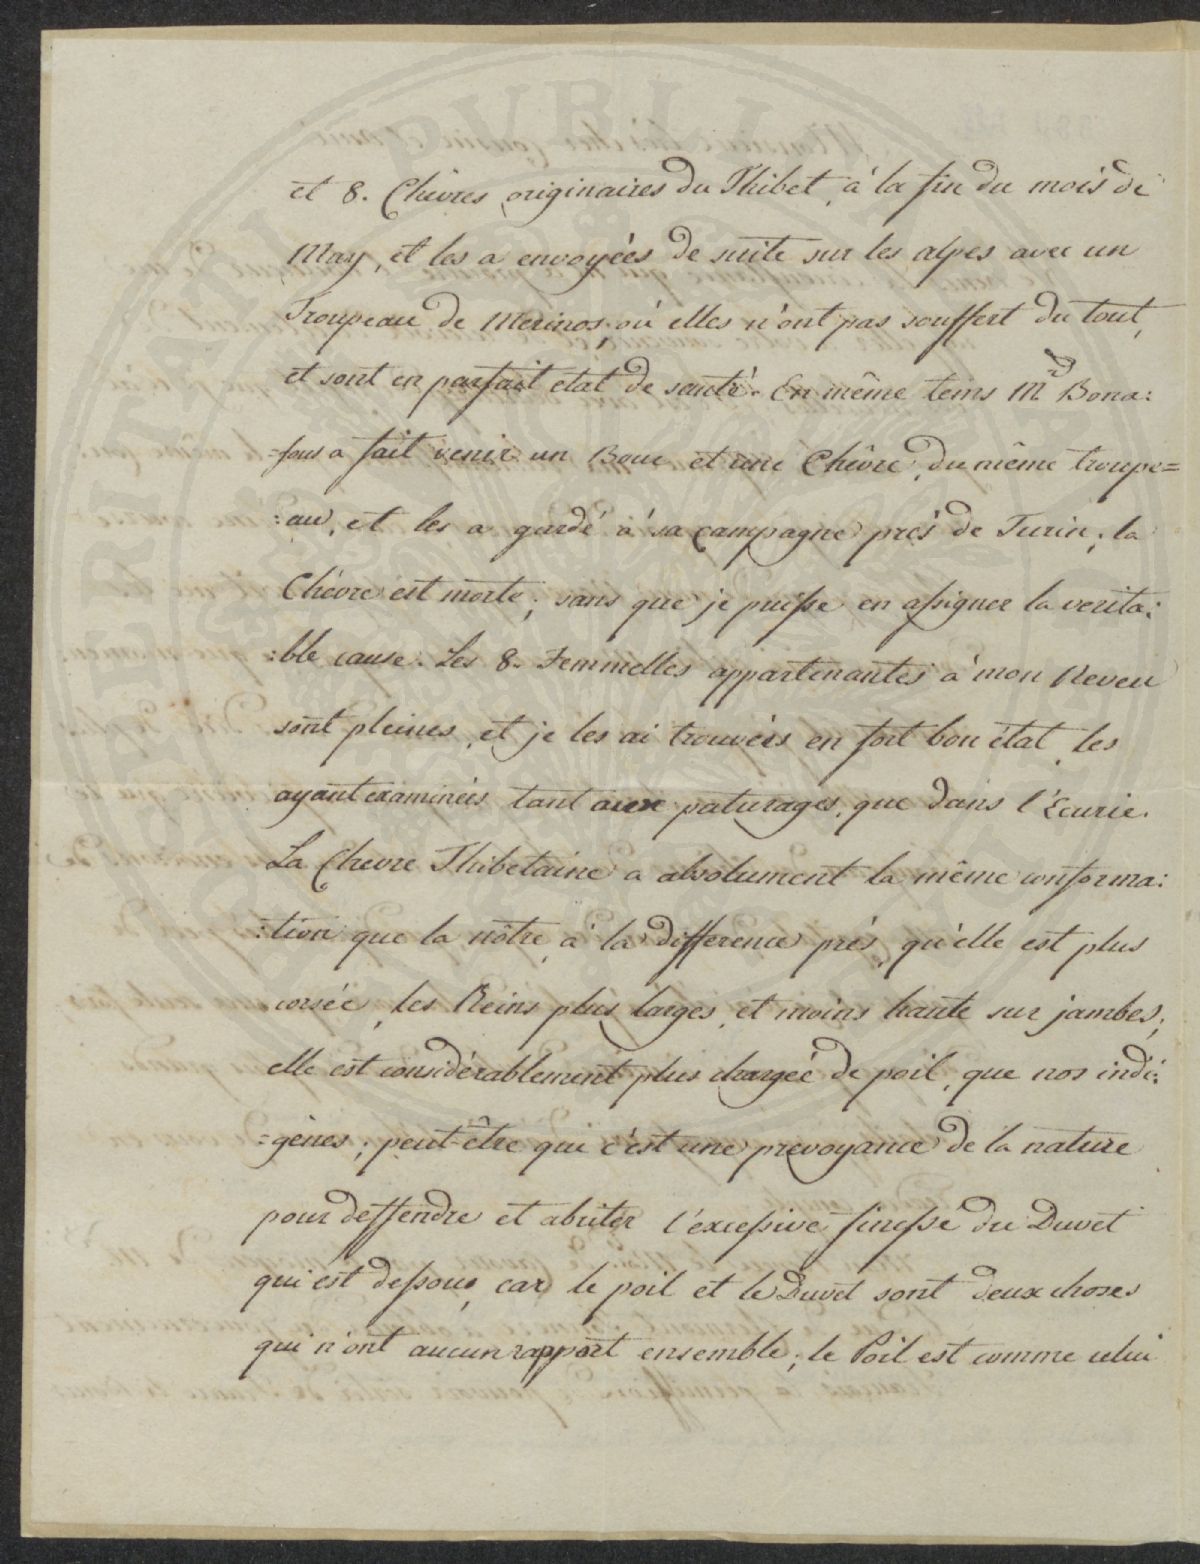 et 8. Chèvres originaires du Thibet, à la fin du mois de
May, et les a envoyées de suite sur les alpes avec un
Troupeau de Merinos, où elles n'ont pas souffert du tout,
et sont en parfait etat de santé. En même tems Mr Bona:
=fous a fait venir un Bouc et une Chèvre, du même troupe=
:au, et les a gardé à sa campagne près de Turin; la
Chèvre est morte; sans que je puisse en assigner la verita:
:ble cause. Les 8. Femmelles appartenantes à mon Neveu
sont pleines, et je les ai trouvées en fort bon état, les
ayant examinées tant aux paturages, que dans l'Ecurie.
La Chevre Thibetaine a absolument la même conforma:
:tion que la nôtre, à la difference près, qu'elle est plus
corsée, les Reins plus larges, et moins haute sur jambes;
elle est considèrablement plus chargée de poil, que nos indi:
=gènes; peut-être que c'est une prevoyance de la nature
pour deffendre et abriter l'excessive finesse du Duvet
qui est dessous, car le poil et le Duvet sont deux choses
qui n'ont aucun rapport ensemble; le Poil est comme celui